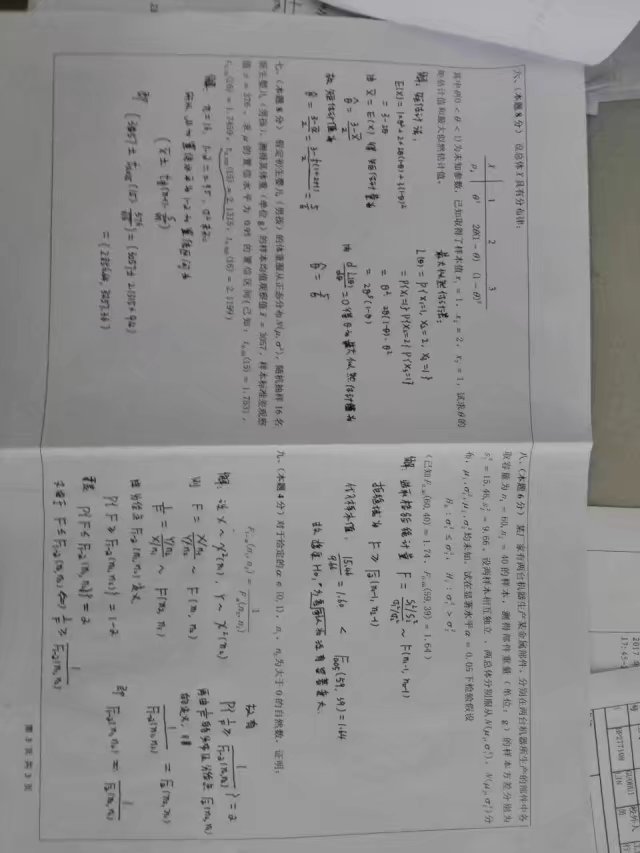 2017年
17:45-2
号
SP277198
GUOHUI
LIN
校外人
员
六、（本题8分） 设总体X具有分布律：
X 1 2 3
p_i θ² 2θ(1-θ) (1-θ)²
其中θ(0<θ<1)为未知参数，已知取得了样本值x₁=1， x₂=2， x₃=1，试求θ的
矩估计值和最大似然估计值。
解：矩估计法：
E(X)=1×θ²+2×2θ(1-θ)+3(1-θ)²
=3-2θ
由 X̄=E(X) 得 矩估计量为
θ̂=(3-X̄)/2
故 矩估计值为
θ̂=(3-x̄)/2=(3-1/3(1+2+1))/2=5/6
最大似然估计法：
L(θ)=P{X₁=1, X₂=2, X₃=1}
=P{X₁=1}P{X₂=2}P{X₃=1}
=θ² 2θ(1-θ)·θ²
=2θ⁵(1-θ)
由 dL(θ)/dθ=0 得 θ的最大似然估计值为
θ̂=5/6
七、（本题8分） 假定初生婴儿（男孩）的体重服从正态分布N(μ,σ²)，随机抽样16名
新生婴儿（男孩），测得其体重（单位g）的样本均值观察值x̄=3057，样本标准差观察
值s=376，求μ的置信水平为0.95的置信区间（已知：t₀.₀₅(15)=1.753，
t₀.₀₂₅(15)=2.1315，
解：n=16, 1-α=0.95, σ²未知
所以 μ的置信水平为1-α的置信区间为
即
=(2856.64, 3257.36)
八、（本题6分） 某厂家有两台机器生产某金属部件，分别在两台机器所生产的部件中各
取容量为n₁=60,n₂=40的样本，测得部件重量（单位：g）的样本方差分别为
s₁²=15.46,s₂²=9.66，设两样本相互独立，两总体分别服从N(μ₁,σ₁²)，N(μ₂,σ₂²)分
布，μ₁,σ₁²,μ₂,σ₂²均未知。试在显著水平α=0.05下检验假设
H₀:σ₁²≤σ₂²， H₁:σ₁²>σ₂²
（已知F₀.₀₅(60,40)=1.74，F₀.₀₅(59,39)=1.64）
解：选取检验统计量 F=(S₁²/S₂²)/(σ₁²/σ₂²) ~ F(n₁-1, n₂-1)
拒绝域为 F≥F_α(n₁-1, n₂-1)
代入样本值，15.46/9.66=1.60 < F₀.₀₅(59, 39)=1.64
九、（本题4分）对于给定的α∈(0,1)，n₁，n₂为大于0的自然数，证明：
F₁₋α(n₁,n₂)=1/F_α(n₂,n₁)
解：设 X~χ²(n₁), Y~χ²(n₂)
则 F=(X/n₁)/(Y/n₂) ~ F(n₁, n₂)
1/F=(Y/n₂)/(X/n₁) ~ F(n₂, n₁)
由分位点 F₁₋α(n₁,n₂) 定义
P{F≥F₁₋α(n₁,n₂)}=1-α
P{F≤F₁₋α(n₁,n₂)}=α
F≤F₁₋α(n₁,n₂) ⇔ 1/F≥1/F₁₋α(n₁,n₂)
故有
P{1/F≥1/F₁₋α(n₁,n₂)}=α
的定义，得
1/F₁₋α(n₁,n₂)=F_α(n₂,n₁)
即 F₁₋α(n₁,n₂)=1/F_α(n₂,n₁)
第3页共3页
23